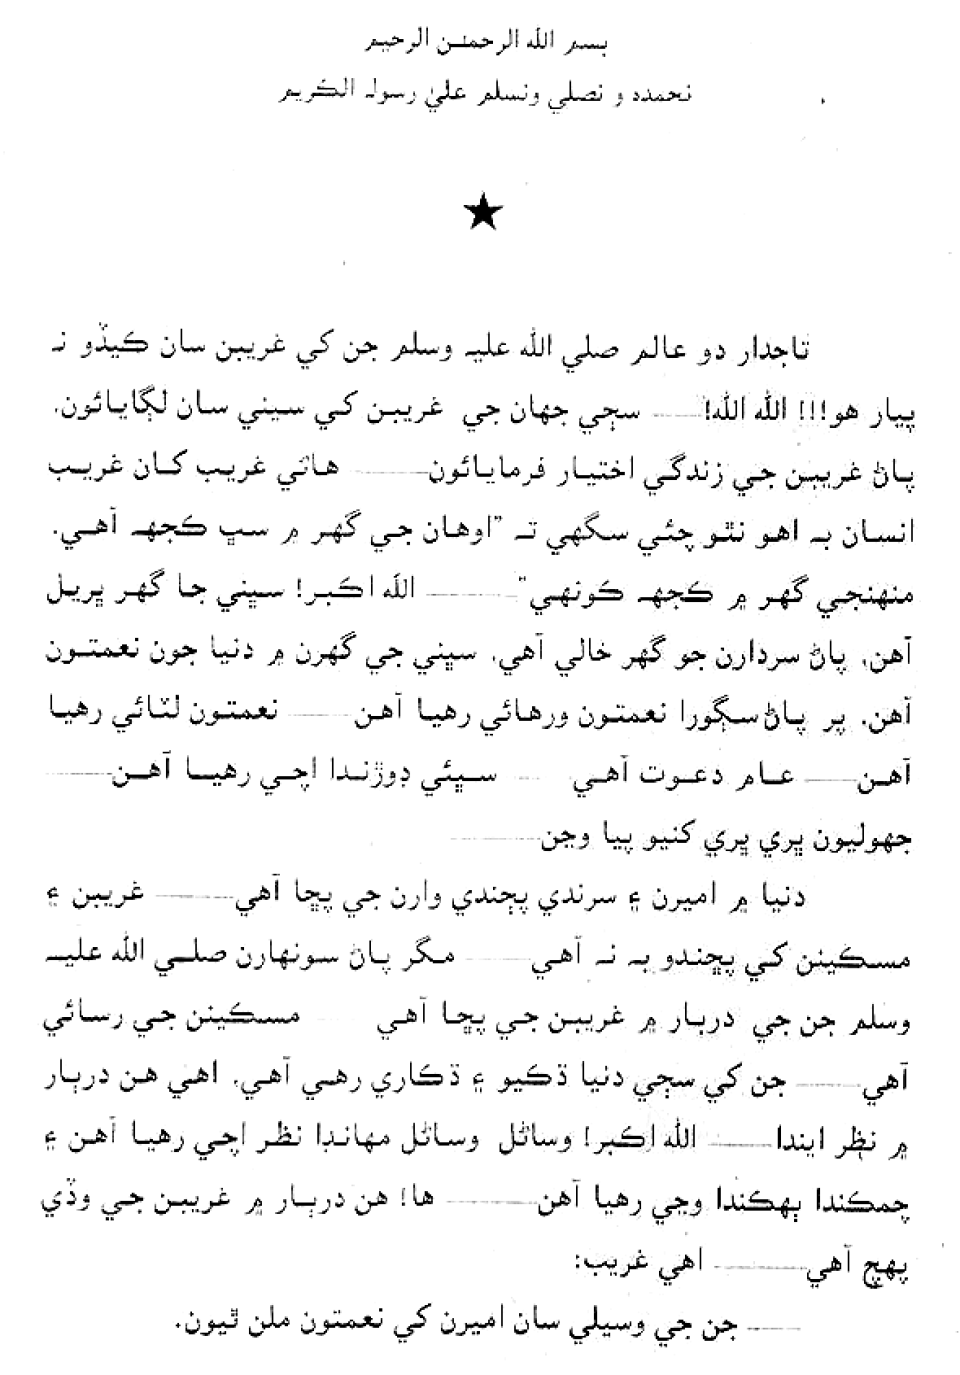 بسم الله الرحمٰن الرحيم
نحمده و نصلي ونسلم عليٰ رسولہ الڪريم
★
تاجدار دو عالم صلي الله عليہ وسلم جن کي غريبن سان ڪيڏو نہ
پيار هو!!! الله الله!ــــــ سڄي جهان جي غريبن کي سيني سان لڳايائون.
پاڻ غريبن جي زندگي اختيار فرمايائونــــــــ هاڻي غريب کان غريب
انسان بہ اهو نٿو چئي سگهي تہ ”اوهان جي گهر ۾ سڀ ڪجهہ آهي.
منهنجي گهر ۾ ڪجهہ ڪونهي“ــــــــــ الله اڪبر! سڀني جا گهر ڀريل
آهن، پاڻ سردارن جو گهر خالي آهي، سڀني جي گهرن ۾ دنيا جون نعمتون
آهن، پر پاڻ سڳورا نعمتون ورهائي رهيا آهن ــــــــ نعمتون لٽائي رهيا
آهن ــــــ عام دعوت آهي ــــ سڀئي ڊوڙندا اچي رهيا آهن ــــــــ
جهوليون ڀري ڀري کنيو پيا وڃن ــــــــــ
دنيا ۾ اميرن ۽ سرندي پڄندي وارن جي پڇا آهي ــــــــ غريبن ۽
مسڪينن کي پڇندو بہ نہ آهي ــــــــ مگر پاڻ سونهارن صلي الله عليہ
وسلم جن جي دربار ۾ غريبن جي پڇا آهي ــــــ مسڪينن جي رسائي
آهي ــــــــ جن کي سڄي دنيا ڌڪيو ۽ ڌڪاري رهي آهي، اهي هن دربار
۾ نظر ايندا ــــــــ الله اڪبر! وسائل وسائل مهاندا نظر اچي رهيا آهن ۽
چمڪندا ٻهڪندا وڃي رهيا آهن ــــــــــ ها! هن دربار ۾ غريبن جي وڏي
پهچ آهي ــــــــــ اهي غريب:
ــــــ جن جي وسيلي سان اميرن کي نعمتون ملن ٿيون.